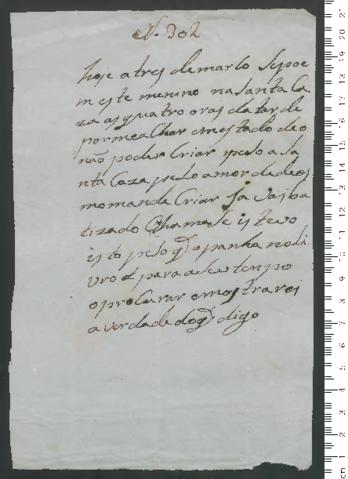 N. 302
hoje a tres de marso se poe
m este menino na santa Ca
za as quatro oras da tarde
por me achar em estado de o
não poder Criar pesso a Sa
nta Caza pelo amor de deos
mo mande Criar Ja vai ba
tizado Chamase istevo
isto pesso q̃ o panha no li
vro para a seu tenpo
o procurar e mostrarei
a verdade do q̃ digo